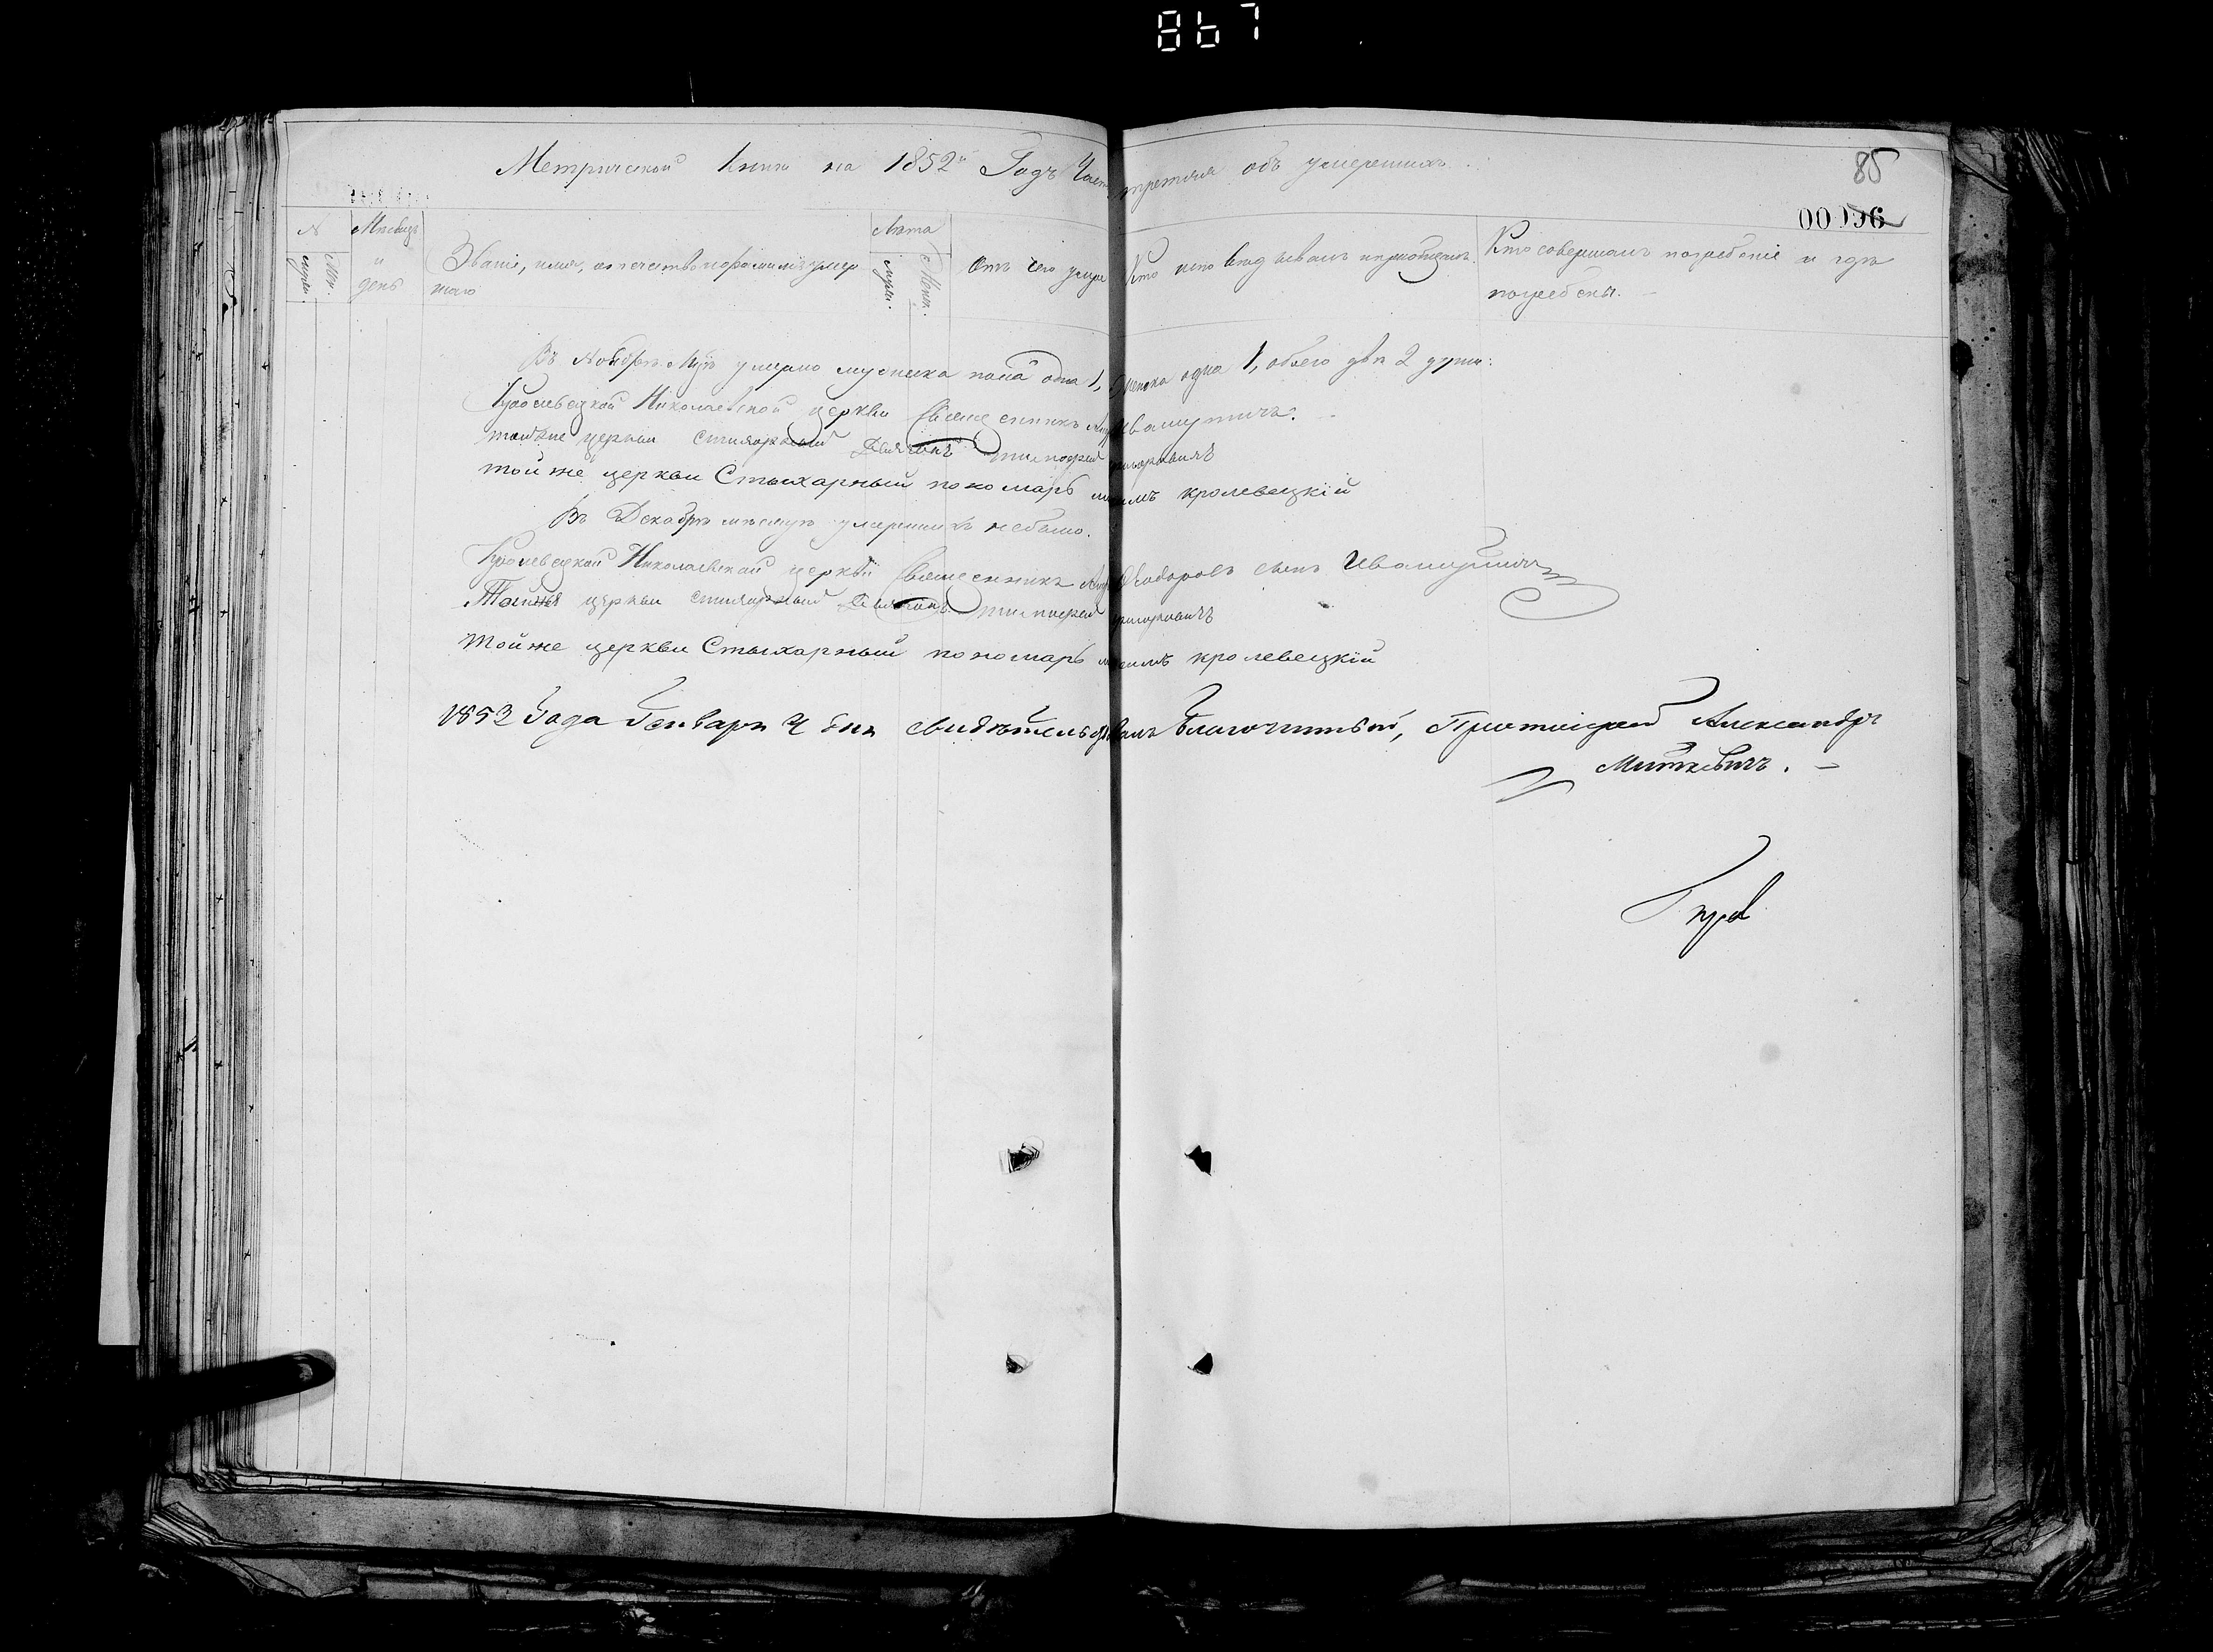 867
Метрической книги на 1852й Годъ Часть третия объ умершихъ.
85
00096
№
Мѣсяцъ и день
Лѣта
Званіе, имя, отчество и фамилія умер
шаго
муж.
жен.
муж.
жен.
Отъ чего умре
Кто исповѣдывалъ и пріобщалъ.
Кто совершалъ погребеніе и гдѣ
погребены.
Въ Ноябрѣ Мцѣ умерло мужеска пола одна 1, женска одна 1, обоего двѣ 2 души:
Кролевецкой Николаевской церкви Священникъ Ивашутичъ.
тойже церкви стихарный Дьячокъ Тимофей Григоровичъ
той же церкви Стыхарный пономарь кролевецкій
Въ Декабрѣ мѣсяцѣ умершихъ небыло.
Кролевецкой Николаевской церкви Священникъ Ѳеодоровъ сынъ Ивашутичъ
Тойже церкви стихарный Дьячокъ Тимофей Григоровичъ
Тойже церкви Стыхарный пономарь кролевецкій
1853 Года Генваря 4 дня свидѣтельствовалъ Благочинный, Протоіерей Александръ
Миткевичъ.